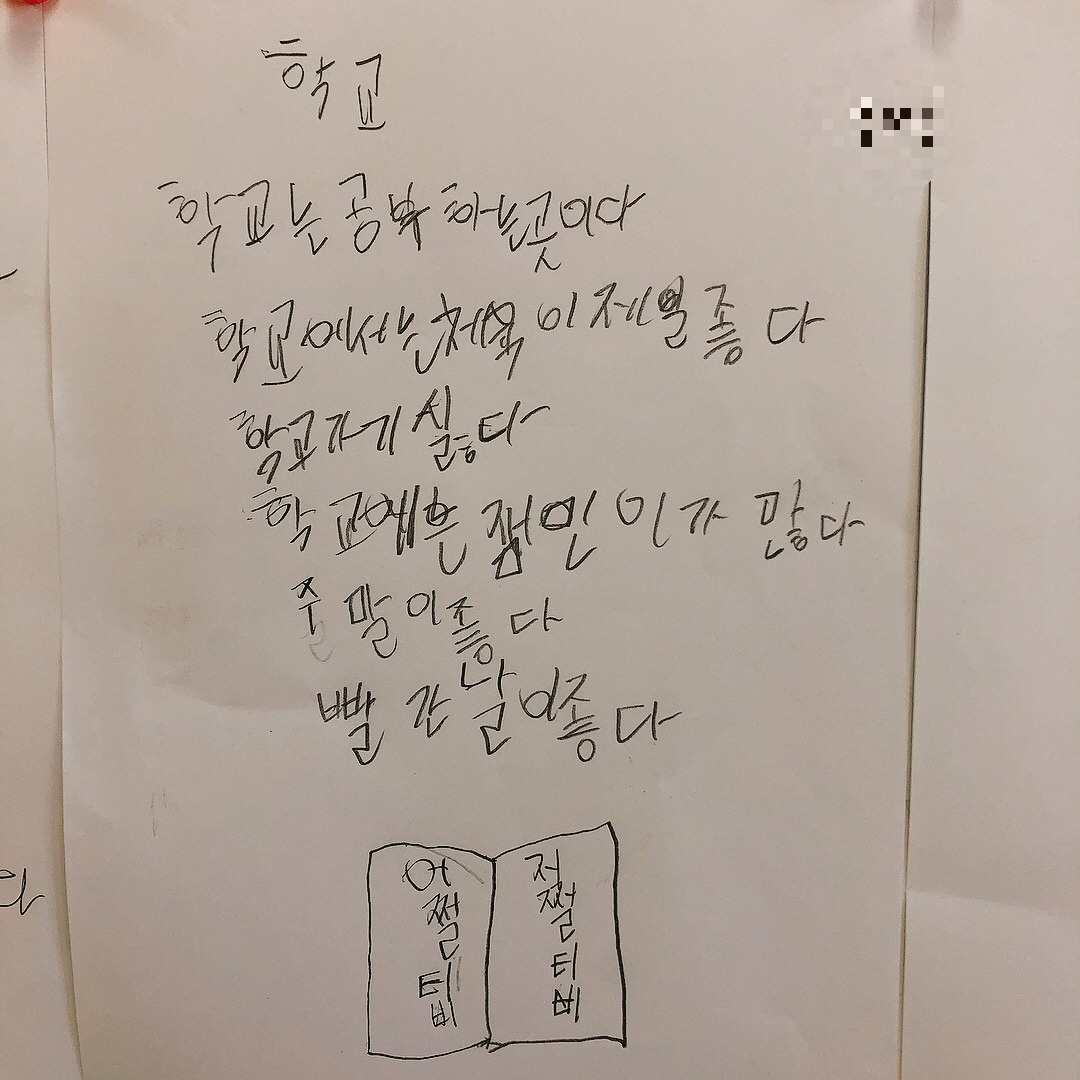 학교
학교는 공부 하는곳이다
학교에서는체육이제일좋다
학교가기 싫다
학교에는 잼민 이가 많다
주말이좋다
빨간날이좋다
어쩔티비
저쩔티비